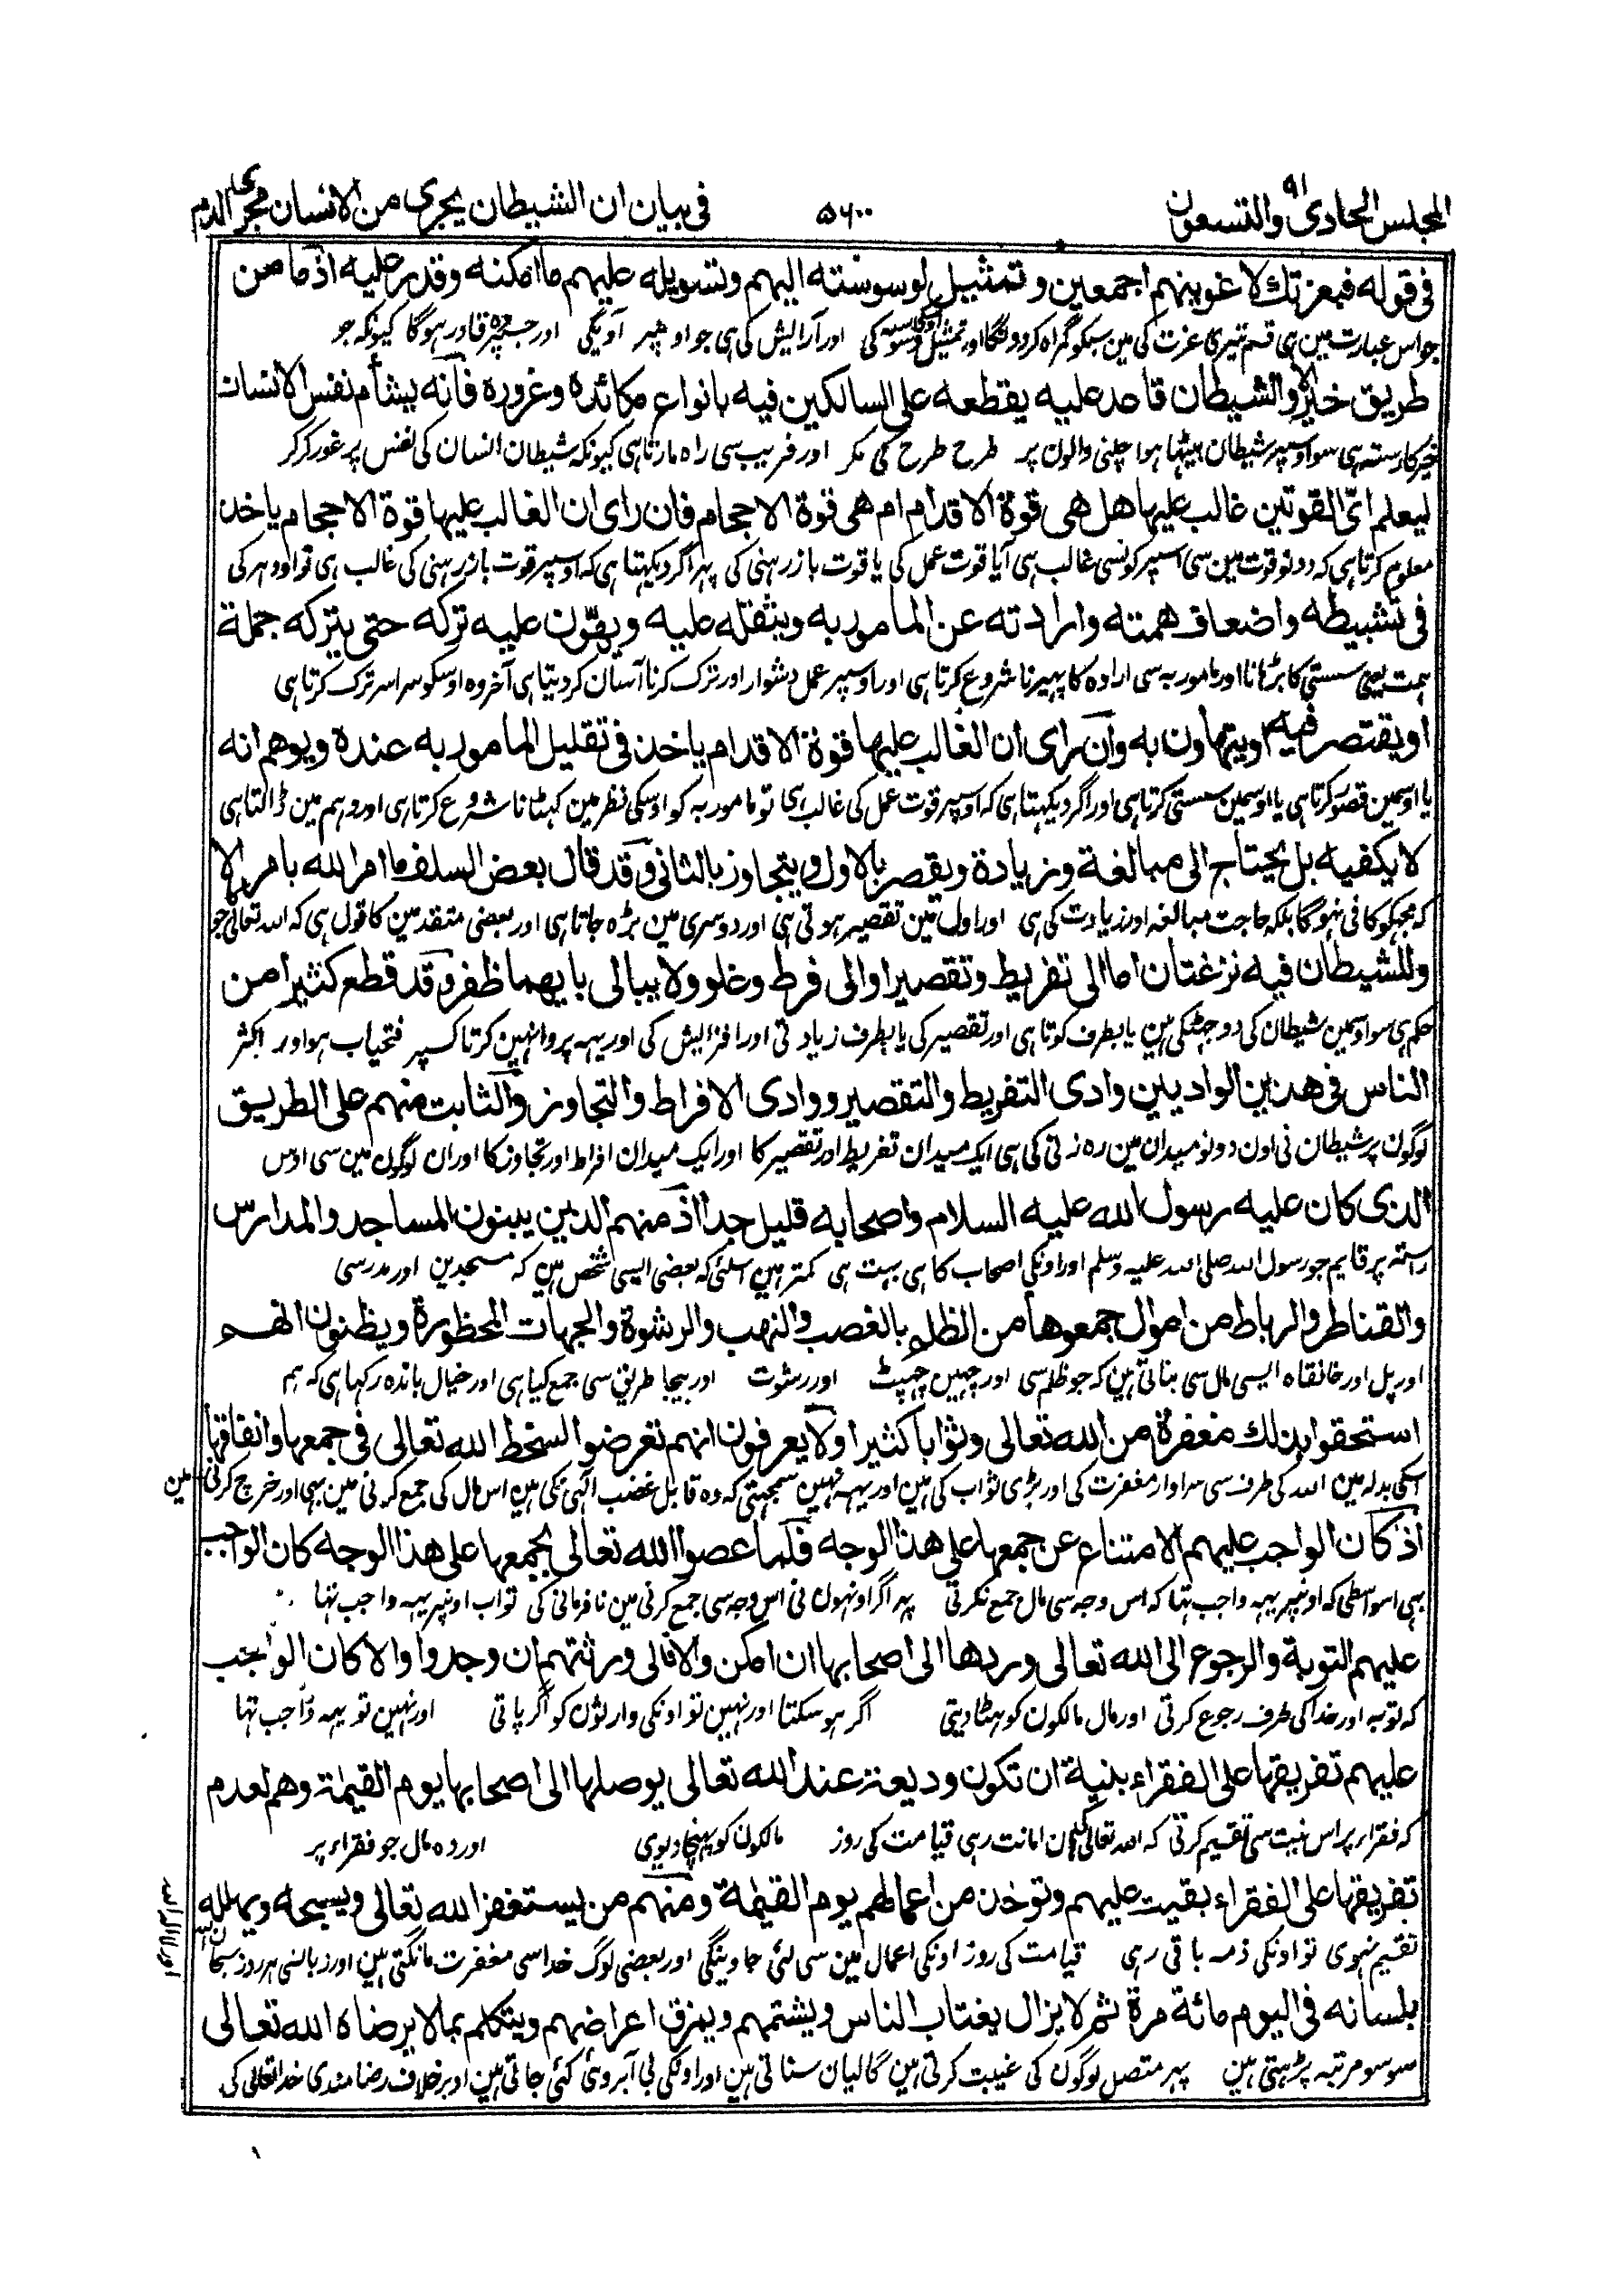 المجلس الحادی والتسعون ۹۱
۵۶۰۰
فی بیان ان الشیطان یجری من الانسان مجری الدم
فی قوله فبعزتک لاغوینهم اجمعین و تمثیل لوسوسته الیهم وتسویله علیهم ما امکنه وقدر علیه اذ ما من
جو اس عبارت مین ہی قسم تیری عزت کی مین سبکو گمراہ کردونگا اور تمثیل وسوسہ کی اور آرایش کی ہی جو اونپر آویگی اور جسپر وہ قادر ہوگا کیونکہ جو
طریق خیر الا والشیطان قاعد علیه یقطعه علی السالکین فیه بانواع مکائده وغروره فانه یشأم نفس الانسان
خیر کا رستہ ہی سو اوسپر شیطان بیٹھا ہوا چلنی والون پر طرح طرح کی مکر اور فریب سی راہ مارتا ہی کیونکہ شیطان انسان کی نفس پر غور کر کر
لیعلم ای القوتین غالب علیها هل هی قوة الاقدام ام هی قوة الاحجام فان رای ان الغالب علیها قوة الاحجام یاخذ
معلوم کرتا ہی کہ دونو قوت مین سی اسپر کونسی غالب ہی آیا قوت عمل کی یا قوت باز رہنی کی پہر اگر دیکہتا ہی کہ اوسپر قوت باز رہنی کی غالب ہی تو اودہر کی
فی تثبیطه واضعاف همته وارادته عن المامور به ویثقله علیه ویهون علیه ترکه حتی یترکه جملة
ہمت یعنی سستی کا بڑہانا اور مامور بہ سی ارادہ کا پہیرنا شروع کرتا ہی اور اوسپر عمل دشوار اور ترک کرنا آسان کر دیتا ہی آخر وہ اوسکو سراسر ترک کرتا ہی
او یقتصر فیه او یتهاون به وان رای ان الغالب علیها قوة الاقدام یاخذ فی تقلیل المامور به عنده ویوهم انه
یا اوسمین قصور کرتا ہی یا اوسمین سستی کرتا ہی اور اگر دیکہتا ہی کہ اوسپر قوت عمل کی غالب ہی تو مامور بہ کو اوسکی نظر مین گہٹانا شروع کرتا ہی اور وہم مین ڈالتا ہی
لا یکفیه بل یحتاج الی مبالغة وزیادة ویقصر بالاول ویتجاوز بالثانی وقد قال بعض السلف ما امر الله بامر الا
کہ مجہکو کافی نہوگا بلکہ حاجت مبالغہ اور زیادت کی ہی اور اول مین تقصیر ہوتی ہی اور دوسری مین بڑہ جاتا ہی اور بعضی متقدمین کا قول ہی کہ اللہ تعالی جو
وللشیطان فیه نزغتان اما الی تفریط وتقصیر او الی فرط وغلو ولا یبالی بایهما ظفر وقد قطع کثیرا من
حکم ہی سو اوسمین شیطان کی دو جہٹکی ہین یا بطرف کوتاہی اور تقصیر کی یا بطرف زیادتی اور افزایش کی اور یہہ پروا نہین کرتا کسپر فتحیاب ہوا اور اکثر
الناس فی هذین الوادیین وادی التفریط والتقصیر ووادی الافراط والتجاوز والثابت منهم علی الطریق
لوگون پر شیطان نی اون دونو میدان مین رہ زنی کی ہی ایک میدان تفریط اور تقصیر کا اور ایک میدان افراط اور تجاوز کا اور ان لوگون مین سی اوس
الذی کان علیه رسول الله علیه السلام واصحابه قلیل جدا اذ منهم الذین یبنون المساجد والمدارس
رستہ پر قایم جو رسول اللہ صلی اللہ علیہ وسلم اور اونکی اصحاب کا ہی بہت ہی کمتر ہین اسلئی کہ بعضی ایسی شخص ہین کہ مسجدین اور مدرسی
والقناطر والرباط من اموال جمعوها من الظلم بالغصب والنهب والرشوة والجهات المحظورة ویظنون انهم
اور پل اور خانقاہ ایسی مال سی بناتی ہین کہ جو ظلم سی اور چہین چہپٹ اور رشوت اور بیجا طریق سی جمع کیا ہی اور خیال باندہ رکہا ہی کہ ہم
استحقوا بذلک مغفرة من الله تعالی وثوابا کثیرا ولا یعرفون انهم تعرضوا لسخط الله تعالی فی جمعها وانفاقها
اسکی بدلہ مین اللہ کی طرف سی سزاوار مغفرت کی اور بڑی ثواب کی ہین اور یہہ نہین سمجہتی کہ وہ قابل غضب الہی کی ہین اس مال کی جمع کرنی مین بہی اور خرچ کرنی مین
اذ کان الواجب علیهم الامتناع عن جمعها علی هذا الوجه فلما عصوا الله تعالی بجمعها علی هذا الوجه کان الواجب
بہی اسواسطی کہ اونپر یہہ واجب تہا کہ اس وجہ سی مال جمع نکرتی پہر اگر اونہون نی اس وجہ سی جمع کرنی مین نافرمانی کی تو اب اونپر یہہ واجب تہا
علیهم التوبة والرجوع الی الله تعالی وردها الی اصحابها ان امکن والا فالی ورثتهم ان وجدوا والا کان الواجب
کہ توبہ اور خدا کی طرف رجوع کرتی اور مال مالکون کو ہٹا دیتی اگر ہو سکتا اور نہین تو اونکی وارثون کو اگر پاتی اور نہین تو یہہ واجب تہا
علیهم تفریقها علی الفقراء بنیة ان تکون ودیعة عند الله تعالی یوصلها الی اصحابها یوم القیمة وهم لعدم
کہ فقراء پر اس نیت سی تقسیم کرتی کہ اللہ تعالی کی امانت رہی قیامت کی روز مالکون کو پہنچا دیوی اور وہ مال جو فقراء پر
تفریقها علی الفقراء بقیت علیهم وتوخذ من اعمالهم یوم القیمة ومنهم من یستغفر الله تعالی ویسبحه ویهلله
تقسیم نہوی تو اونکی ذمہ باقی رہی قیامت کی روز اونکی اعمال مین سی لئی جاوینگی اور بعضی لوگ خدا سی مغفرت مانگتی ہین اور زبانسی ہر روز سبحان اللہ
اور لا الہ الا اللہ
بلسانه فی الیوم مائة مرة ثم لا یزال یغتاب الناس ویشتمهم ویمزق اعراضهم ویتکلم بما لا یرضاه الله تعالی
سو سو مرتبہ پڑہتی ہین پہر متصل لوگون کی غیبت کرتی ہین گالیان سناتی ہین اور اونکی بی آبروئی کئی جاتی ہین اور برخلاف رضامندی خدا تعالی کی